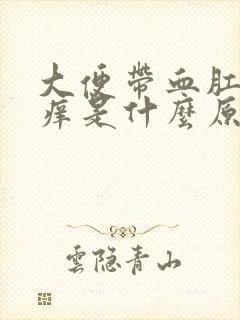 大便帶血肛
痒是什麼原
雲隐青山